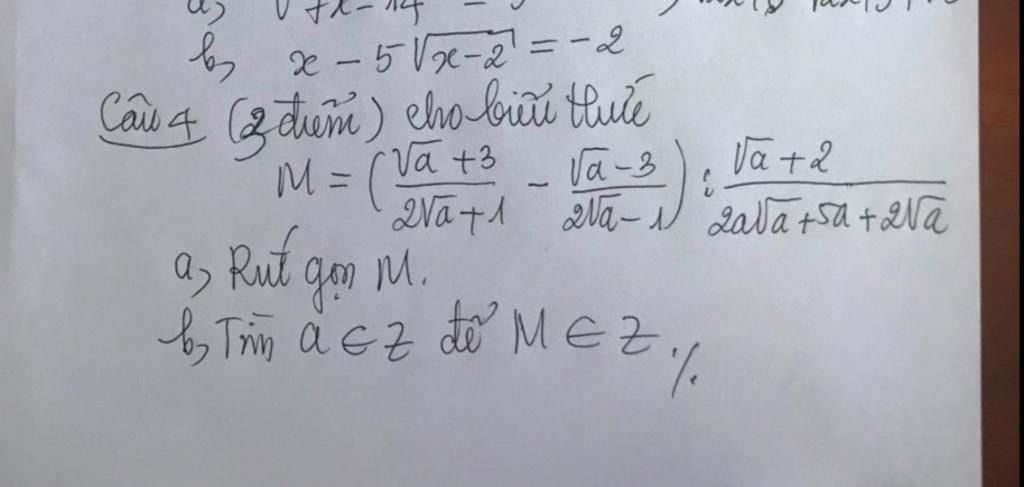 a, √7x-14
b, x - 5√x-2 = -2
Câu 4 (3 điểm) cho biểu thức
M = (√a + 3 / 2√a + 1 - √a - 3 / 2√a - 1) : √a + 2 / 2a√a + 5a + 2√a
a, Rút gọn M.
b, Tìm a ∈ Z để M ∈ Z ./.